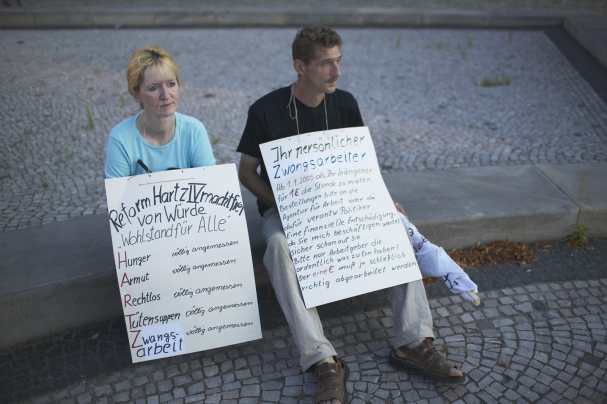 Reform Hartz IV macht frei
von Würde
"Wohlstand für Alle"
Hunger völlig angemessen
Armut völlig angemessen
Rechtlos völlig angemessen
Tütensuppen völlig angemessen
Zwangs-
arbeit
Ihr persönlicher
Zwangsarbeiter
Ab 1.1.2005 als Ihr Leibeigener
für 1€ die Stunde zu mieten.
Bestellungen bitte an die
Agentur für Arbeit oder die
dafür verantw. Politiker.
Eine finanzielle Entschädigung,
da Sie mich beschäftigen, wartet
sicher schon auf sie.
Bitte nur Arbeitgeber die
ordentlich was zu tun haben!
Der eine € muß ja schließlich
richtig abgearbeitet werden